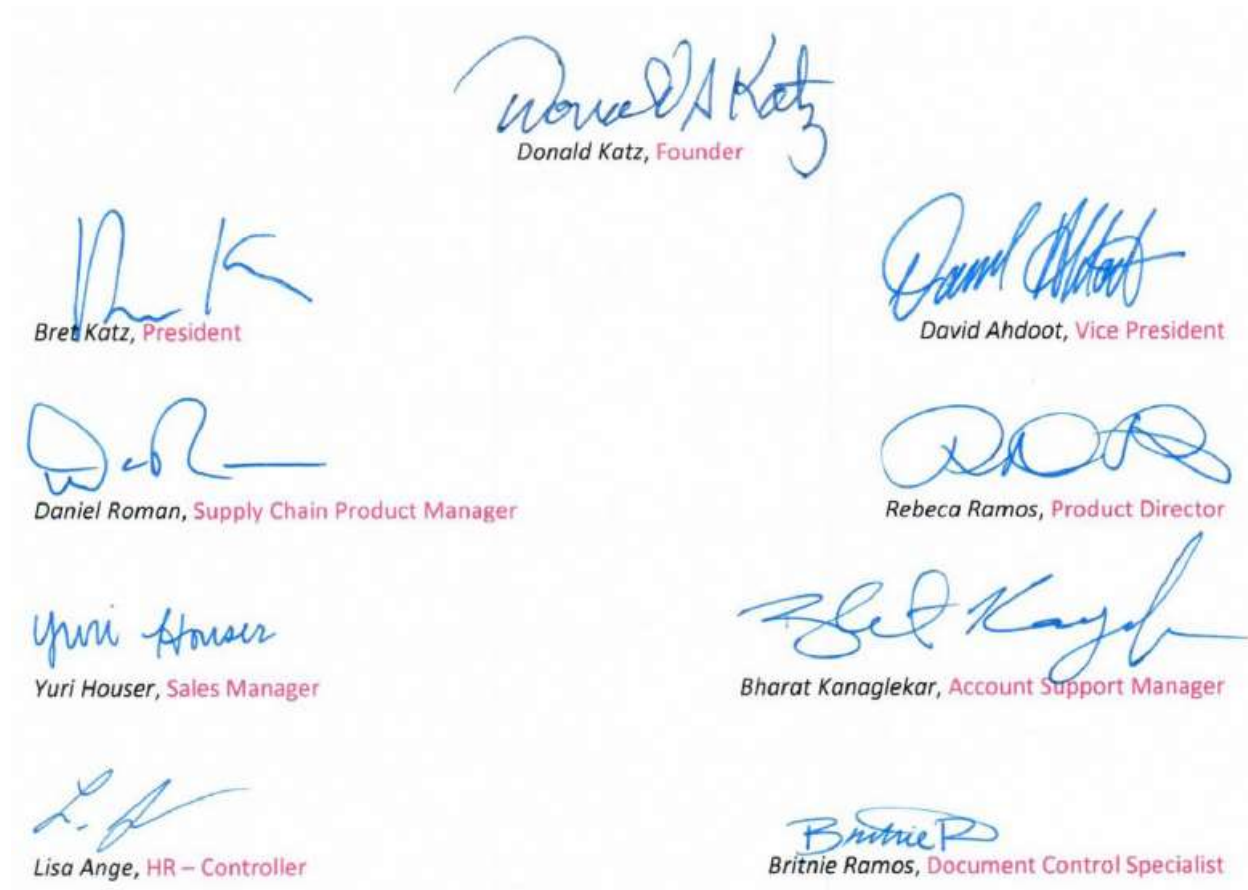 Donald A Katz
Donald Katz, Founder
Bret Katz, President
David Ahdoot, Vice President
Daniel Roman, Supply Chain Product Manager
Rebeca Ramos, Product Director
Yuri Houser
Yuri Houser, Sales Manager
Bharat Kanaglekar, Account Support Manager
Lisa Ange, HR – Controller
Britnie R
Britnie Ramos, Document Control Specialist